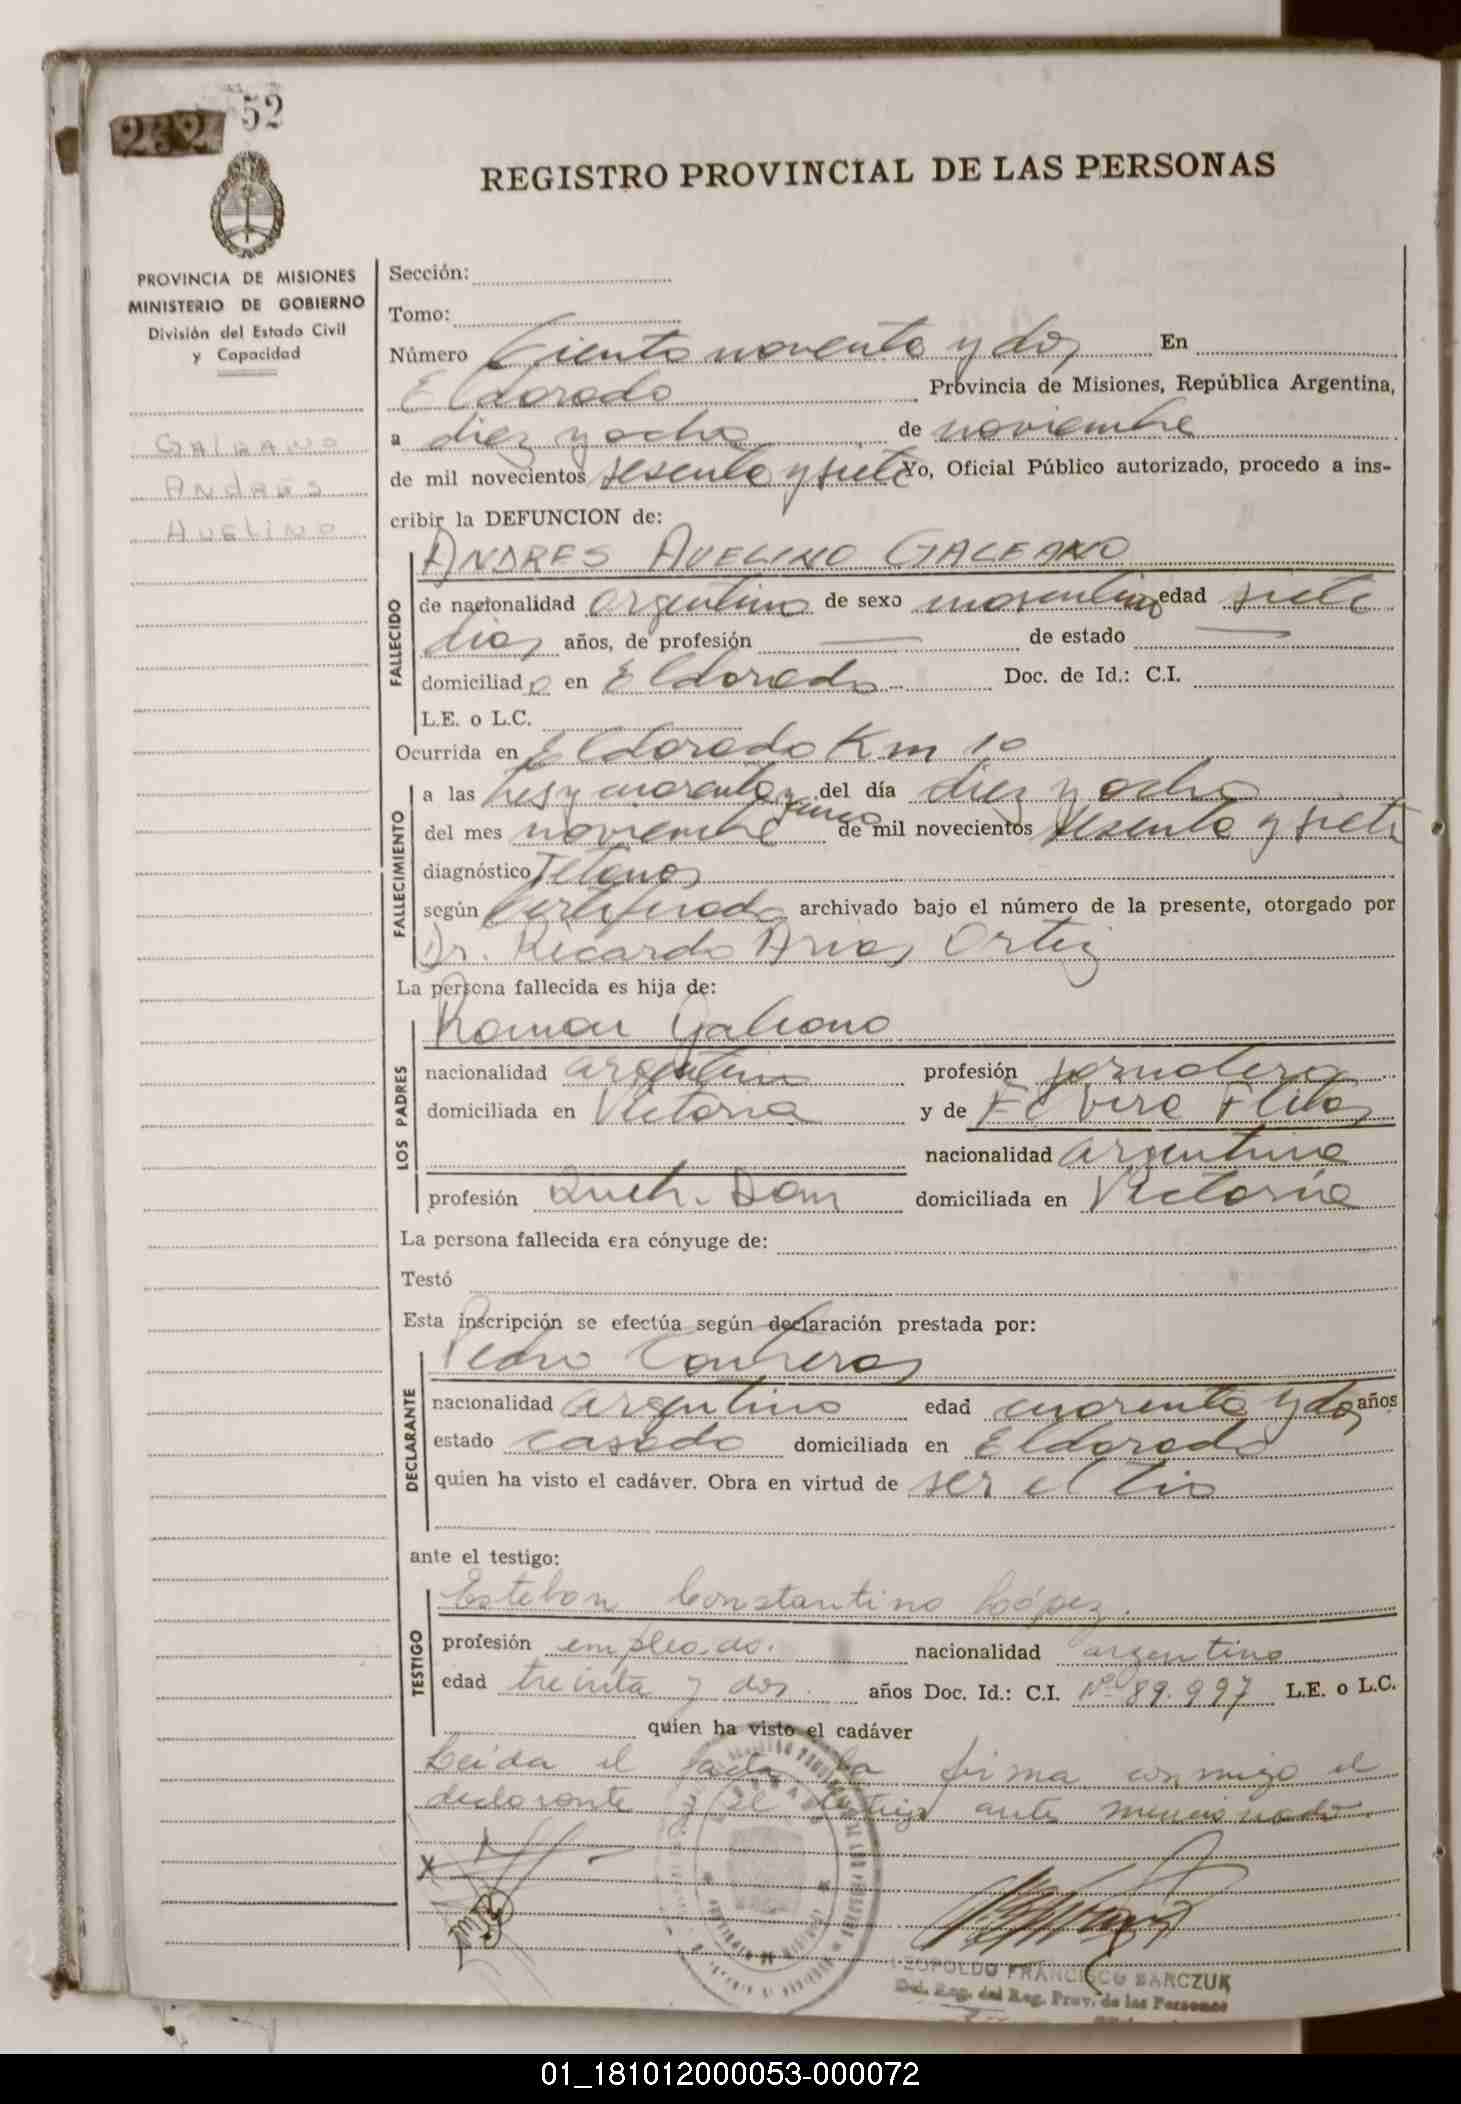 232 52
REGISTRO PROVINCIAL DE LAS PERSONAS
PROVINCIA DE MISIONES
MINISTERIO DE GOBIERNO
División del Estado Civil
y Capacidad
GALEANO
ANDRES
AVELINO
Sección:
Tomo:
Número Ciento noventa y dos En
Eldorado Provincia de Misiones, República Argentina,
a diez y ocho de noviembre
de mil novecientos sesenta y siete Yo, Oficial Público autorizado, procedo a ins-
cribir la DEFUNCION de:
FALLECIDO
ANDRES AVELINO GALEANO
de nacionalidad argentino de sexo masculino edad siete
dias años, de profesión de estado
domiciliado en Eldorado Doc. de Id.: C.I.
L.E. o L.C.
Ocurrida en Eldorado Km 10
FALLECIMIENTO
a las tres y cuarenta y cinco del día diez y ocho
del mes noviembre de mil novecientos sesenta y siete
diagnóstico Tetanos
según Certificado archivado bajo el número de la presente, otorgado por
Dr. Ricardo Arias Ortiz
La persona fallecida es hija de:
LOS PADRES
Roman Galeano
nacionalidad argentina profesión jornalero
domiciliada en Victoria y de Elvira
nacionalidad argentina
profesión Queh. Dom domiciliada en Victoria
La persona fallecida era cónyuge de:
Testó
Esta inscripción se efectúa según declaración prestada por:
DECLARANTE
Pedro Contreras
nacionalidad argentino edad cuarenta y dos años
estado casado domiciliada en Eldorado
quien ha visto el cadáver. Obra en virtud de ser el tio
ante el testigo:
TESTIGO
Esteban Constantino López.
profesión empleado. nacionalidad argentino
edad treinta y dos. años Doc. Id.: C.I. Nº 89.997 L.E. o L.C.
quien ha visto el cadáver
Leida el acta la firma conmigo el
declarante y el testigo ante mencionado.
X
LEOPOLDO FRANCISCO BARCZUK
Del. Reg. del Reg. Prov. de las Personas
01_181012000053-000072